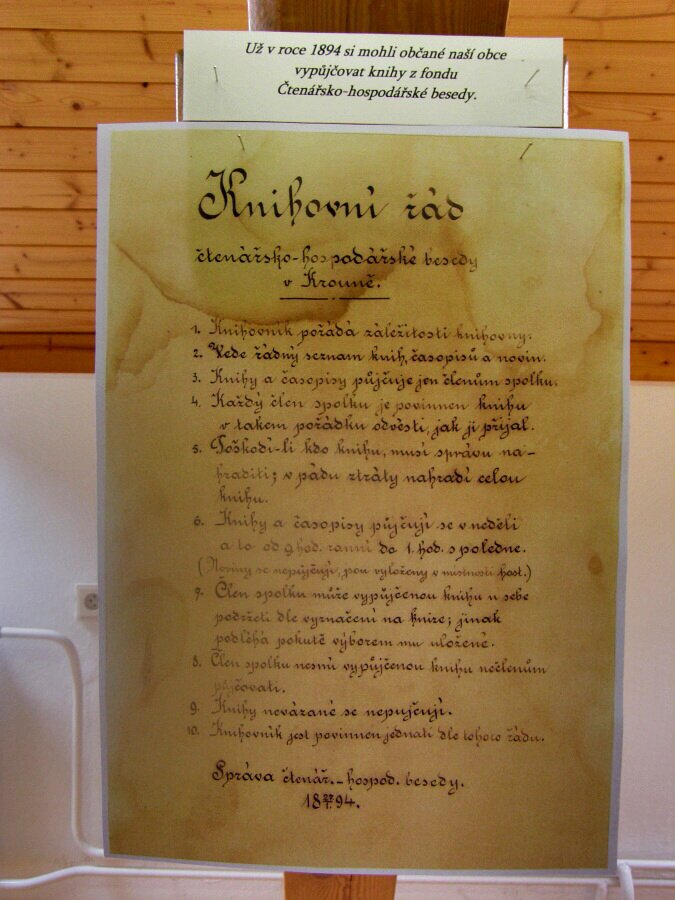 Už v roce 1894 si mohli občané naší obce
vypůjčovat knihy z fondu
Čtenářsko-hospodářské besedy.
Knihovní řád
čtenářsko-hospodářské besedy
v Krouně.
1. Knihovník pořádá záležitosti knihovny.
2. Vede řádný seznam knih, časopisů a novin.
3. Knihy a časopisy půjčuje jen členům spolku.
4. Každý člen spolku je povinnen knihu
v takem pořádku odvésti, jak ji přijal.
5. Poškodí-li kdo knihu, musí správu na-
hraditi; v pádu ztráty nahradí celou
knihu.
6. Knihy a časopisy půjčují se v neděli
a to od 9 hod. ranní do 1. hod. s poledne.
(Noviny se nepůjčují, jsou vyloženy v místnosti host.)
7. Člen spolku může vypůjčenou knihu u sebe
podržeti dle vyznačení na knize; jinak
podléhá pokutě výborem mu uložené.
8. Člen spolku nesmí vypůjčenou knihu nečlenům
půjčovati.
9. Knihy nevázané se nepujčují.
10. Knihovník jest povinnen jednati dle tohoto řádu.
Správa čtenář.-hospod. besedy.
18 94.